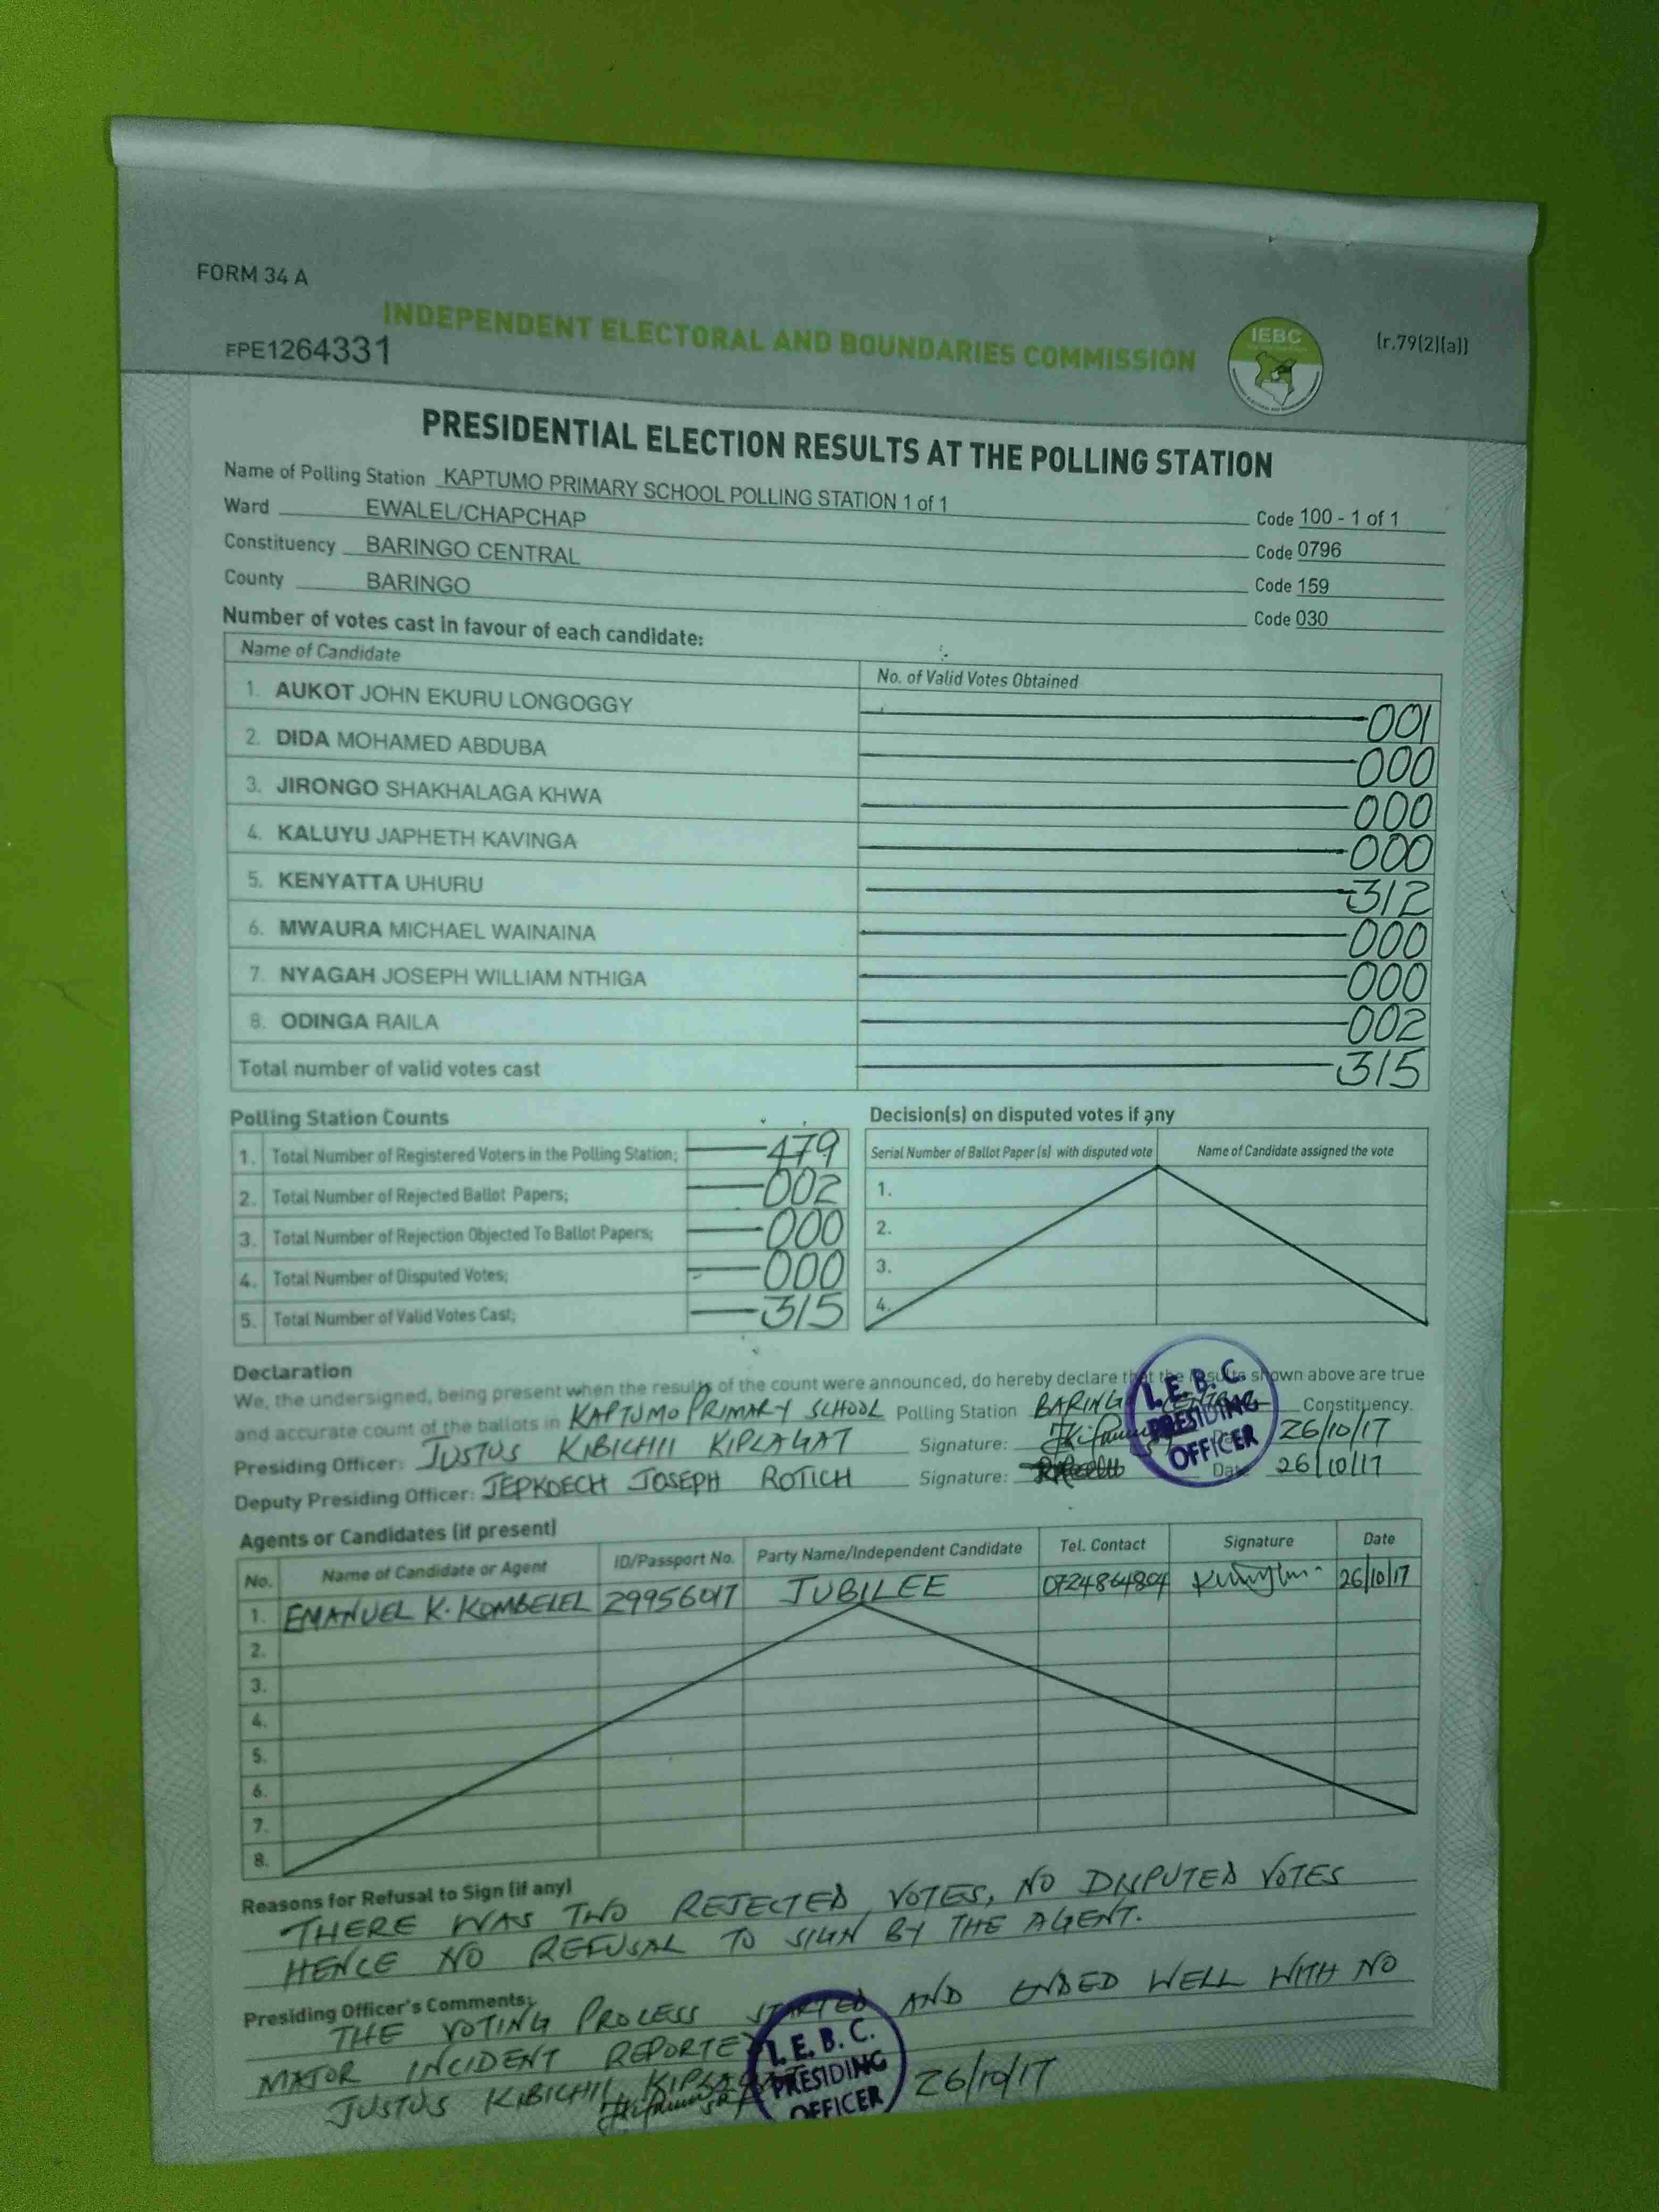 FORM 34 A
INDEPENDENT ELECTORAL AND BOUNDARIES COMMISSION
IEBC
(r.79(2)(a))
FPE1264331
PRESIDENTIAL ELECTION RESULTS AT THE POLLING STATION
Name of Polling Station KAPTUMO PRIMARY SCHOOL POLLING STATION 1 of 1 Code 100 - 1 of 1
Ward EWALEL/CHAPCHAP Code 0796
Constituency BARINGO CENTRAL Code 159
County BARINGO Code 030
Number of votes cast in favour of each candidate:
Name of Candidate No. of Valid Votes Obtained
1. AUKOT JOHN EKURU LONGOGGY 001
2. DIDA MOHAMED ABDUBA 000
3. JIRONGO SHAKHALAGA KHWA 000
4. KALUYU JAPHETH KAVINGA 000
5. KENYATTA UHURU 312
6. MWAURA MICHAEL WAINAINA 000
7. NYAGAH JOSEPH WILLIAM NTHIGA 000
8. ODINGA RAILA 002
Total number of valid votes cast 315
Polling Station Counts
1. Total Number of Registered Voters in the Polling Station; 479
2. Total Number of Rejected Ballot Papers; 002
3. Total Number of Rejection Objected To Ballot Papers; 000
4. Total Number of Disputed Votes; 000
5. Total Number of Valid Votes Cast; 315
Decision(s) on disputed votes if any
Serial Number of Ballot Paper (s) with disputed vote Name of Candidate assigned the vote
1.
2.
3.
4.
Declaration
We, the undersigned, being present when the results of the count were announced, do hereby declare that the results shown above are true
and accurate count of the ballots in KAPTUMO PRIMARY SCHOOL Polling Station BARINGO CENTRAL Constituency.
Presiding Officer: JUSTUS KIBICHII KIPLAGAT Signature: Date 26/10/17
Deputy Presiding Officer: JEPKOECH JOSEPH ROTICH Signature: Date 26/10/17
I.E.B.C
PRESIDING
OFFICER
Agents or Candidates (if present)
No. Name of Candidate or Agent ID/Passport No. Party Name/Independent Candidate Tel. Contact Signature Date
1. EMANUEL K. KOMBELEL 29956017 JUBILEE 0724864804 26/10/17
2.
3.
4.
5.
6.
7.
8.
Reasons for Refusal to Sign (if any)
THERE WAS TWO REJECTED VOTES, NO DISPUTED VOTES
HENCE NO REFUSAL TO SIGN BY THE AGENT.
Presiding Officer's Comments:
THE VOTING PROCESS STARTED AND ENDED WELL WITH NO
MAJOR INCIDENT REPORTED
JUSTUS KIBICHII KIPLAGAT 26/10/17
I.E.B.C.
PRESIDING
OFFICER